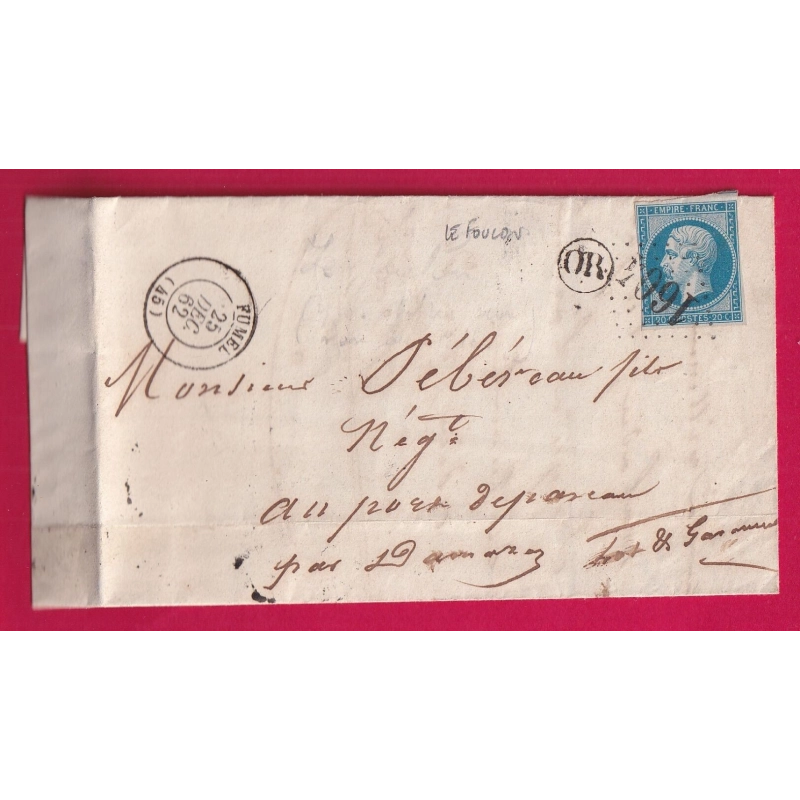 LE FOULON
EMPIRE FRANC.
20 C POSTES 20 C
OR
1661
FUMEL
25
DEC.
62
(45)
Monsieur Débéreau fils
Négt
au port de pascau
par Damazan Lot & Garonne